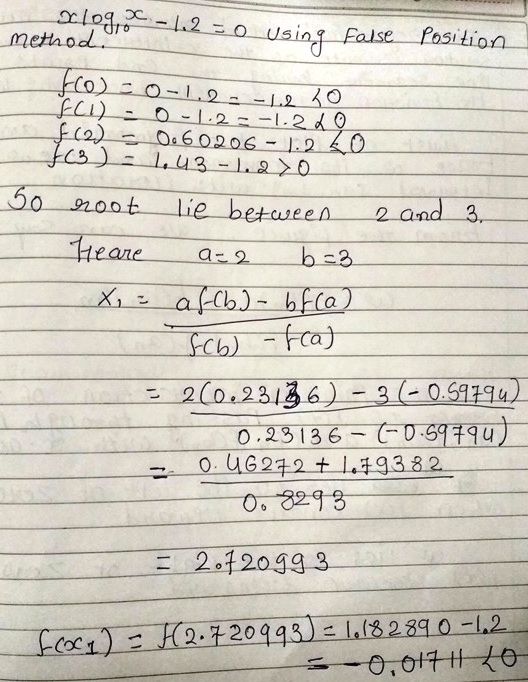 x log₁₀ x - 1.2 = 0 Using False Position
method.
f(0) = 0 - 1.2 = -1.2 < 0
f(1) = 0 - 1.2 = -1.2 < 0
f(2) = 0.60206 - 1.2 < 0
f(3) = 1.43 - 1.2 > 0
So root lie between 2 and 3.
Heare a = 2 b = 3
x₁ = af(b) - bf(a)
f(b) - f(a)
= 2(0.23136) - 3(-0.59794)
0.23136 - (-0.59794)
= 0.46272 + 1.79382
0.8293
= 2.720993
f(x₁) = f(2.720993) = 1.182890 - 1.2
= -0.01711 < 0